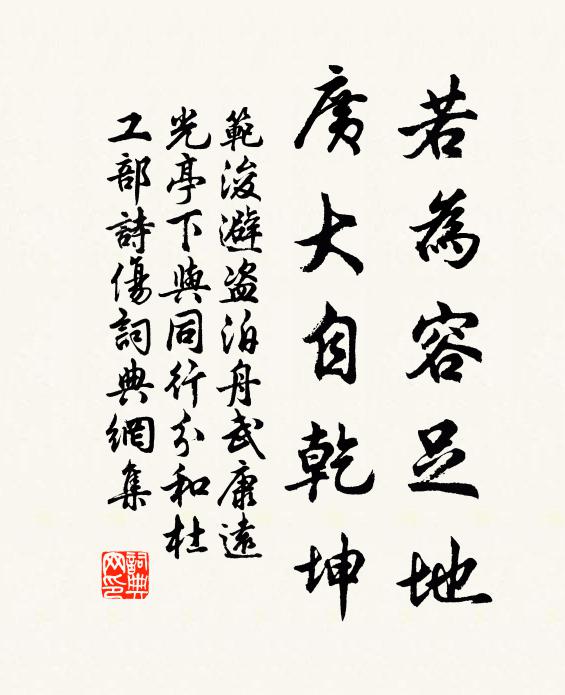 若為容足地
廣大自乾坤
範浚避盗泊舟武康遠
光亭下與同行分和杜
工部詩傷詞典網集
詞典
网印